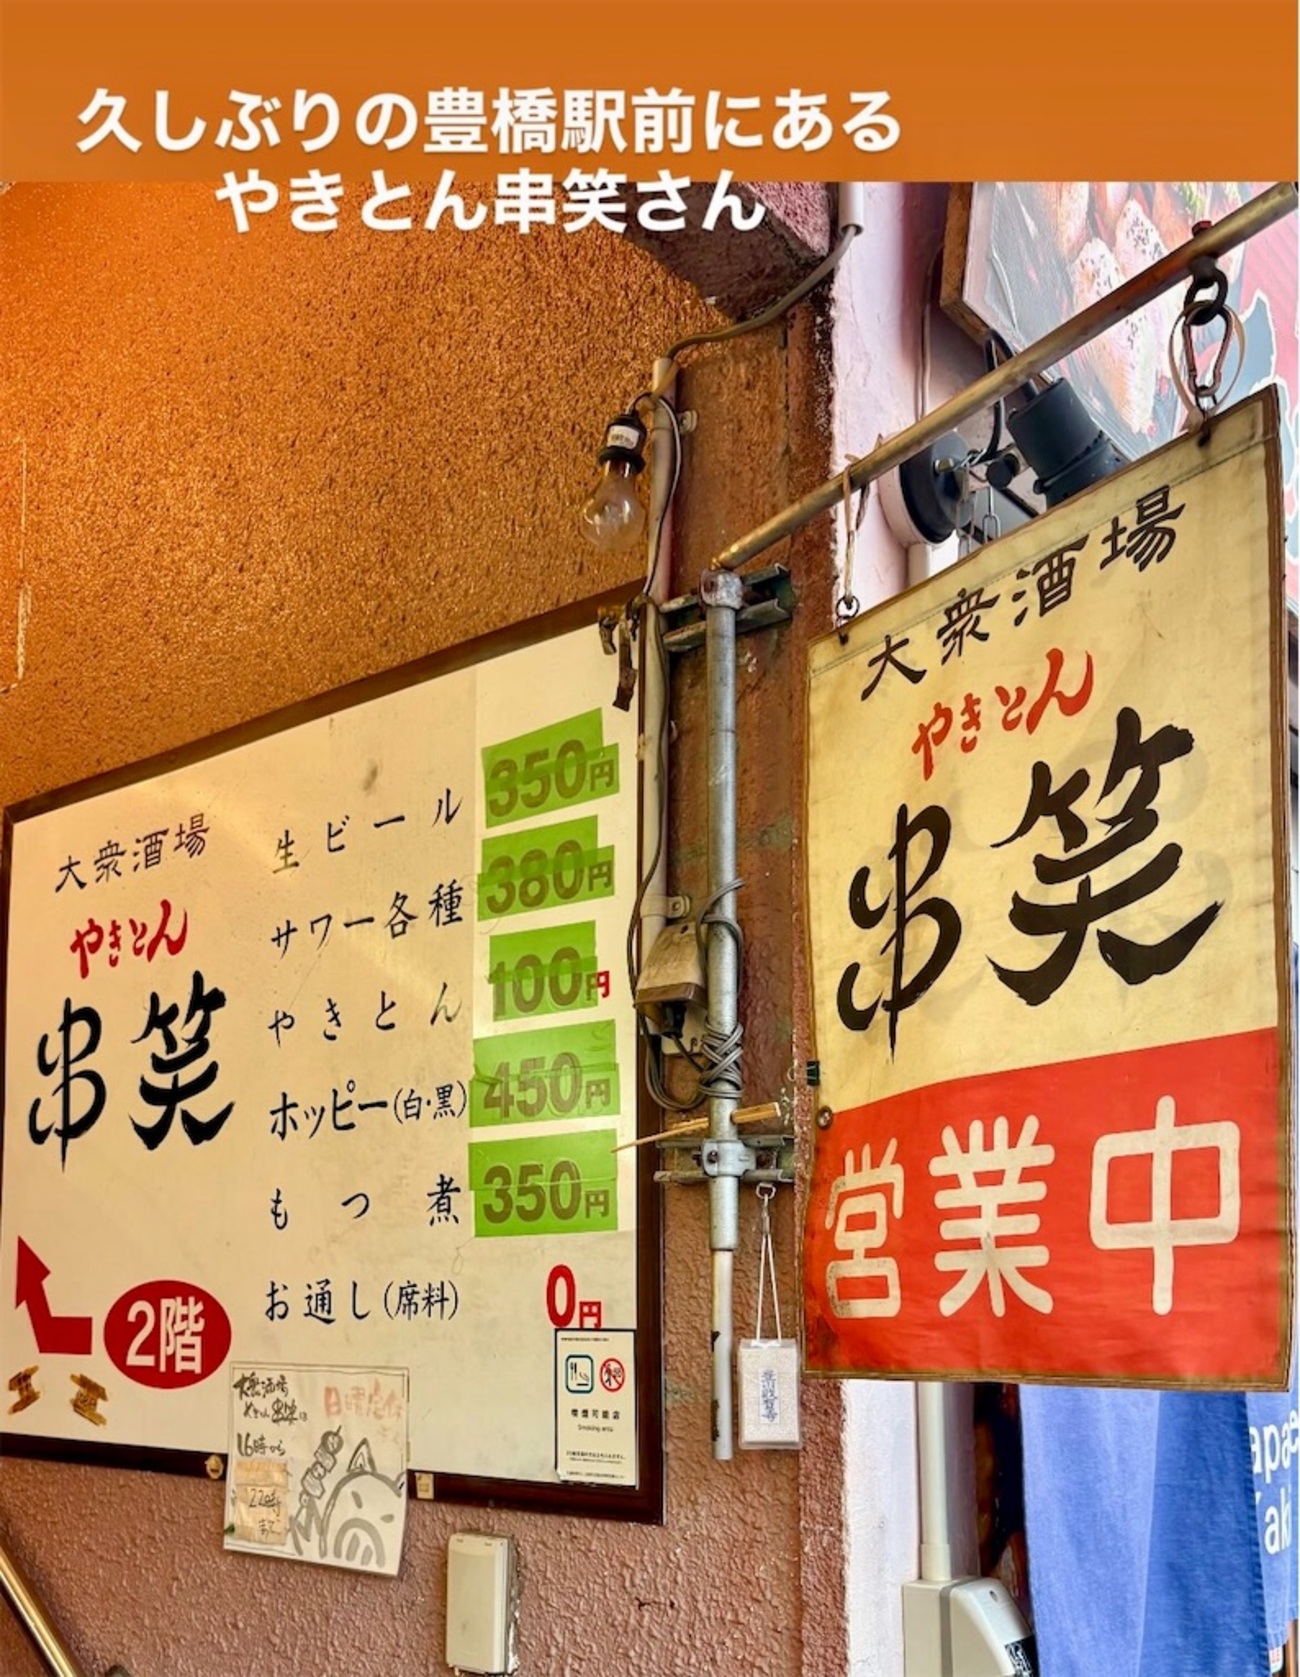 久しぶりの豊橋駅前にある
やきとん串笑さん
大衆酒場
やきとん
串笑
営業中
大衆酒場
やきとん
串笑
2階
生ビール 350円
サワー各種 380円
やきとん 100円
ホッピー(白·黒) 450円
もつ煮 350円
お通し(席料) 0円
喫煙可能店
Smoking area
大衆酒場
やきとん串笑は
日曜定休
16時から
22時
まで